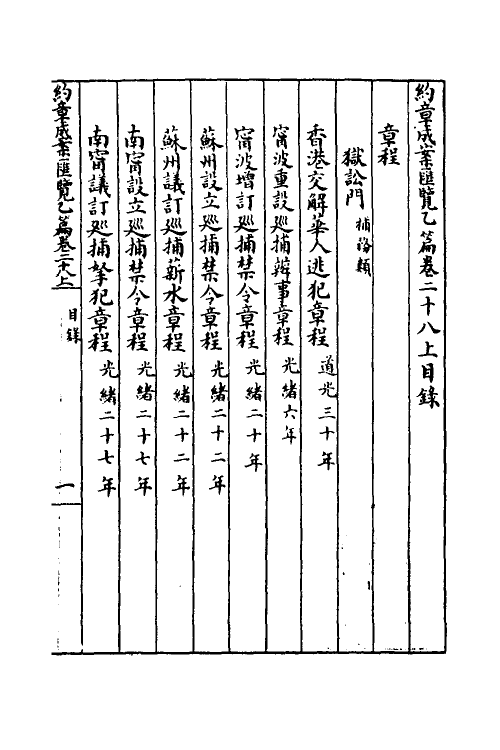 約章成案匯覽乙篇卷二十八上目錄
章程
獄訟門 捕務類
香港交解華人逃犯章程 道光三十年
甯波重設巡捕辦事章程 光緒六年
甯波增訂巡捕禁令章程 光緒十年
蘇州設立巡捕禁令章程 光緒二十二年
蘇州議訂巡捕薪水章程 光緒二十二年
南甯設立巡捕禁令章程 光緒二十七年
南甯議訂巡捕拏犯章程 光緒二十七年
約章成案匯覽乙篇卷二十八上 目錄 一